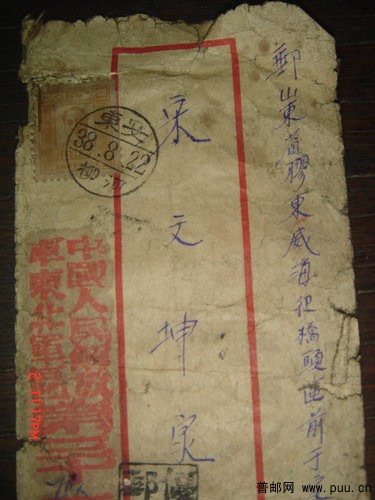 郵山東省膠東威海 橋頭區前于
宋文坤
東安
38.8.22
柳河
中國人民解放
軍東北軍區
第三
郵
普邮网 www.puu.cn